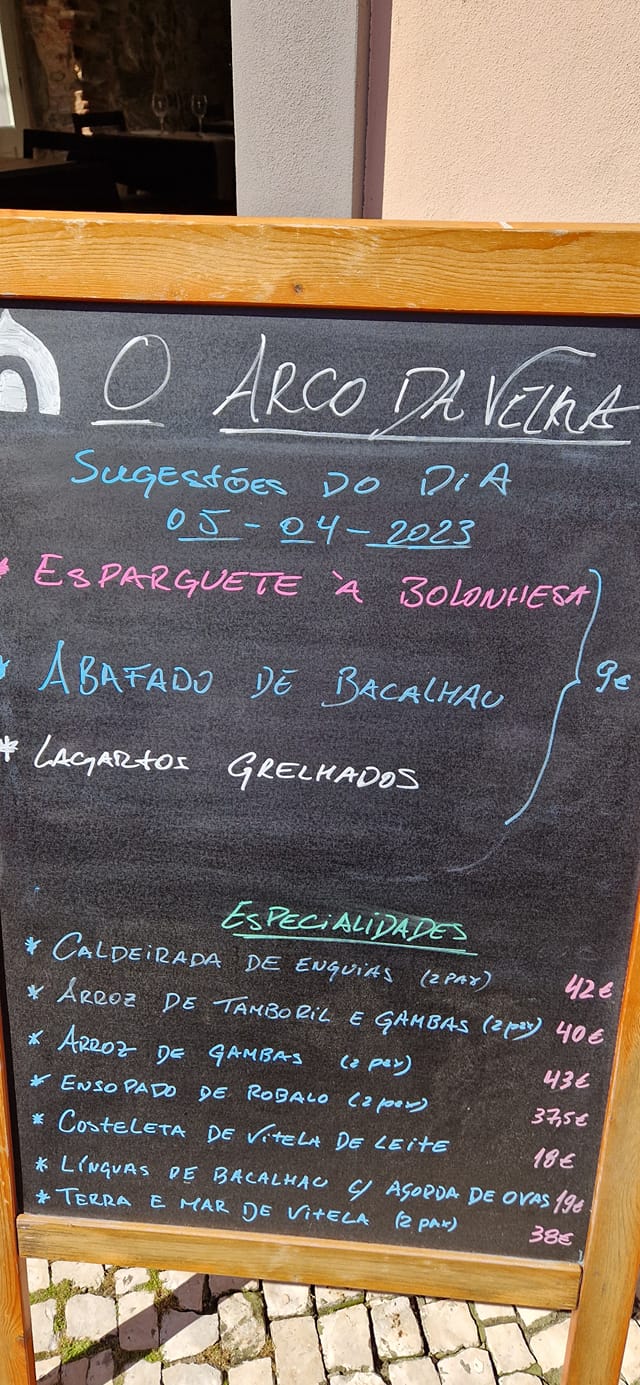 O ARCO DA VELHA
SUGESTÕES DO DIA
05-04-2023
* ESPARGUETE À BOLONHESA
* ABAFADO DE BACALHAU 9€
* LAGARTOS GRELHADOS
ESPECIALIDADES
* CALDEIRADA DE ENGUIAS (2 PAX) 42€
* ARROZ DE TAMBORIL E GAMBAS (2 pax) 40€
* ARROZ DE GAMBAS (2 pax) 43€
* ENSOPADO DE ROBALO (2 pax) 37,5€
* COSTELETA DE VITELA DE LEITE 18€
* LÍNGUAS DE BACALHAU C/ AÇORDA DE OVAS 19€
* TERRA E MAR DE VITELA (2 pax) 38€